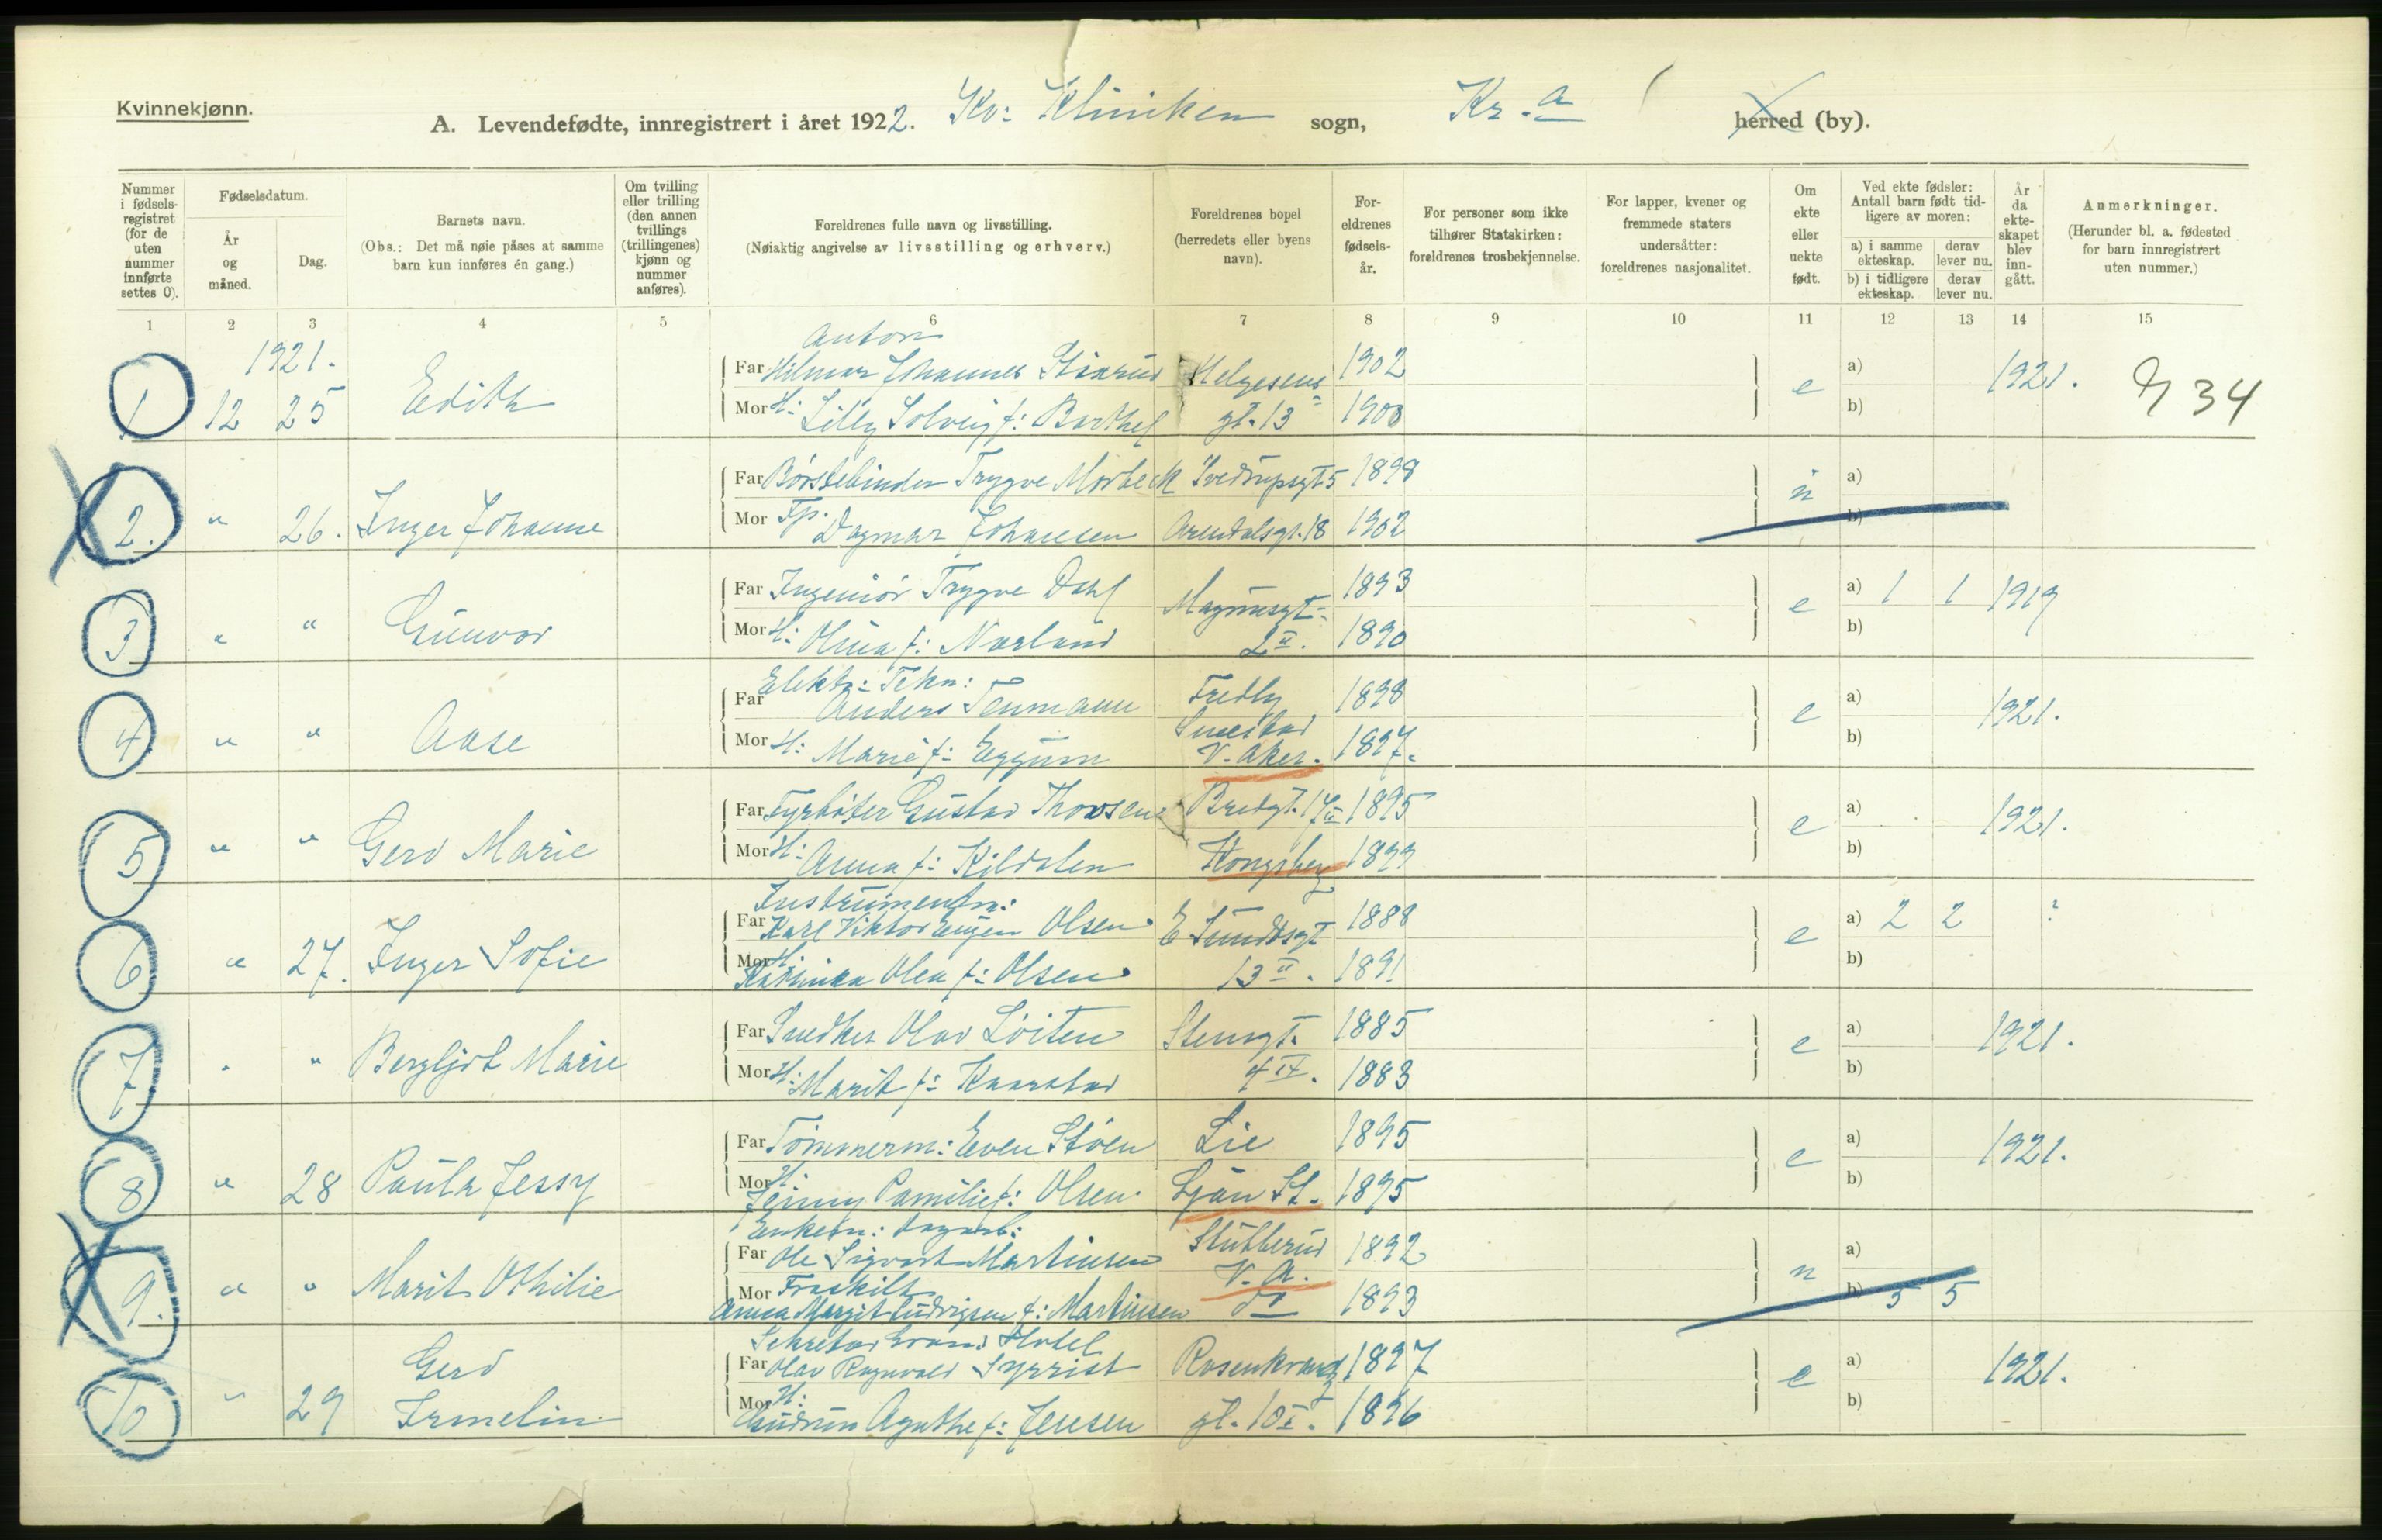 Kvinnekjønn.
A. Levendefødte, innregistrert i året 1922. Kv: Kliniken sogn, Kr.a herred (by).
Nummer i fødsels-registret (for de uten nummer innførte settes 0).
Fødselsdatum.
År og måned.
Dag.
Barnets navn.
(Obs.: Det må nøie påses at samme barn kun innføres én gang.)
Om tvilling eller trilling (den annen tvillings (trillingenes) kjønn og nummer anføres).
Foreldrenes fulle navn og livsstilling.
(Nøiaktig angivelse av livsstilling og erhverv.)
Foreldrenes bopel (herredets eller byens navn).
For-eldrenes fødsels-år.
For personer som ikke tilhører Statskirken: foreldrenes trosbekjennelse.
For lapper, kvener og fremmede staters undersåtter: foreldrenes nasjonalitet.
Om ekte eller uekte født.
Ved ekte fødsler: Antall barn født tid-ligere av moren:
a) i samme ekteskap.
derav lever nu.
b) i tidligere ekteskap.
derav lever nu.
År da ekte-skapet blev inn-gått.
Anmerkninger.
(Herunder bl. a. fødested for barn innregistrert uten nummer.)
1 2 3 4 5 6 7 8 9 10 11 12 13 14 15
1921.
Anton
Far Hilmar Johannes Helgesens 1902 a)
1 12 25 Edith e 1921. 34
Mor H: Lilly Solveig f: Barthel gt. 13 1900 b)
Far Børstebinder Trygve Morbeck 5 1898 a)
2. " 26. Inger Johanne u
Mor Fp. Dagmar Johansen Arendalsgt. 18 1902 b)
Far Ingeniør Trygve Dahl Magnusgt. 1893 a) 1 1
3 " " Gunvor e 1919
Mor H: Olina f: Narland 2 II. 1890 b)
Elektr: Tekn:
Far Anders Tenmann Fredly 1898 a)
4 " " Aase Smestad e 1921.
Mor H: Marie f: Eggum V. Aker. 1897. b)
Far Fyrbøter Gustav Thowsen Bredgt. 14 II 1895 a)
5 " " Gerd Marie e 1921.
Mor H: Anna f: Kildalen Kongsberg 1899 b)
Instrumentm:
Far Karl Viktor Eugen Olsen E Sundtsgt 1888 a) 2 2 ?
6 " 27. Inger Sofie e
Mor H: Katinka Olea f: Olsen 13 II. 1891 b)
Far Snedker Olav Løiten Stensgt. 1885 a)
7 " " Bergljot Marie e 1921.
Mor H: Marit f: Kaarstad 4 IV. 1883 b)
Far Tømmerm: Even Støen Lie 1895 a)
8 " 28 Paula Jessy e 1921.
Mor H: Jenny Pamilie f: Olsen Ljan St. 1895 b)
Enkem: dagarb:
Far Ole Sigvart Martinsen Stubberud 1892 a)
9. " " Marit Othilie V. A. u
Mor Fraskilt
Anna Margit Ludvigsen f: Martinsen do 1893 b) 5 5
Sekretær Grand Hotel
Far Olav Ragnvald Syrrist Rosenkrantz 1897 a)
10 " 29 Gerd Irmelin e 1921.
Mor H: Gudrun Agathe f: Jensen gt. 10 I. 1896 b)